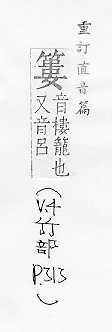 重訂直音篇
簍
音樓籠也
又音呂
(V4竹部P.313)